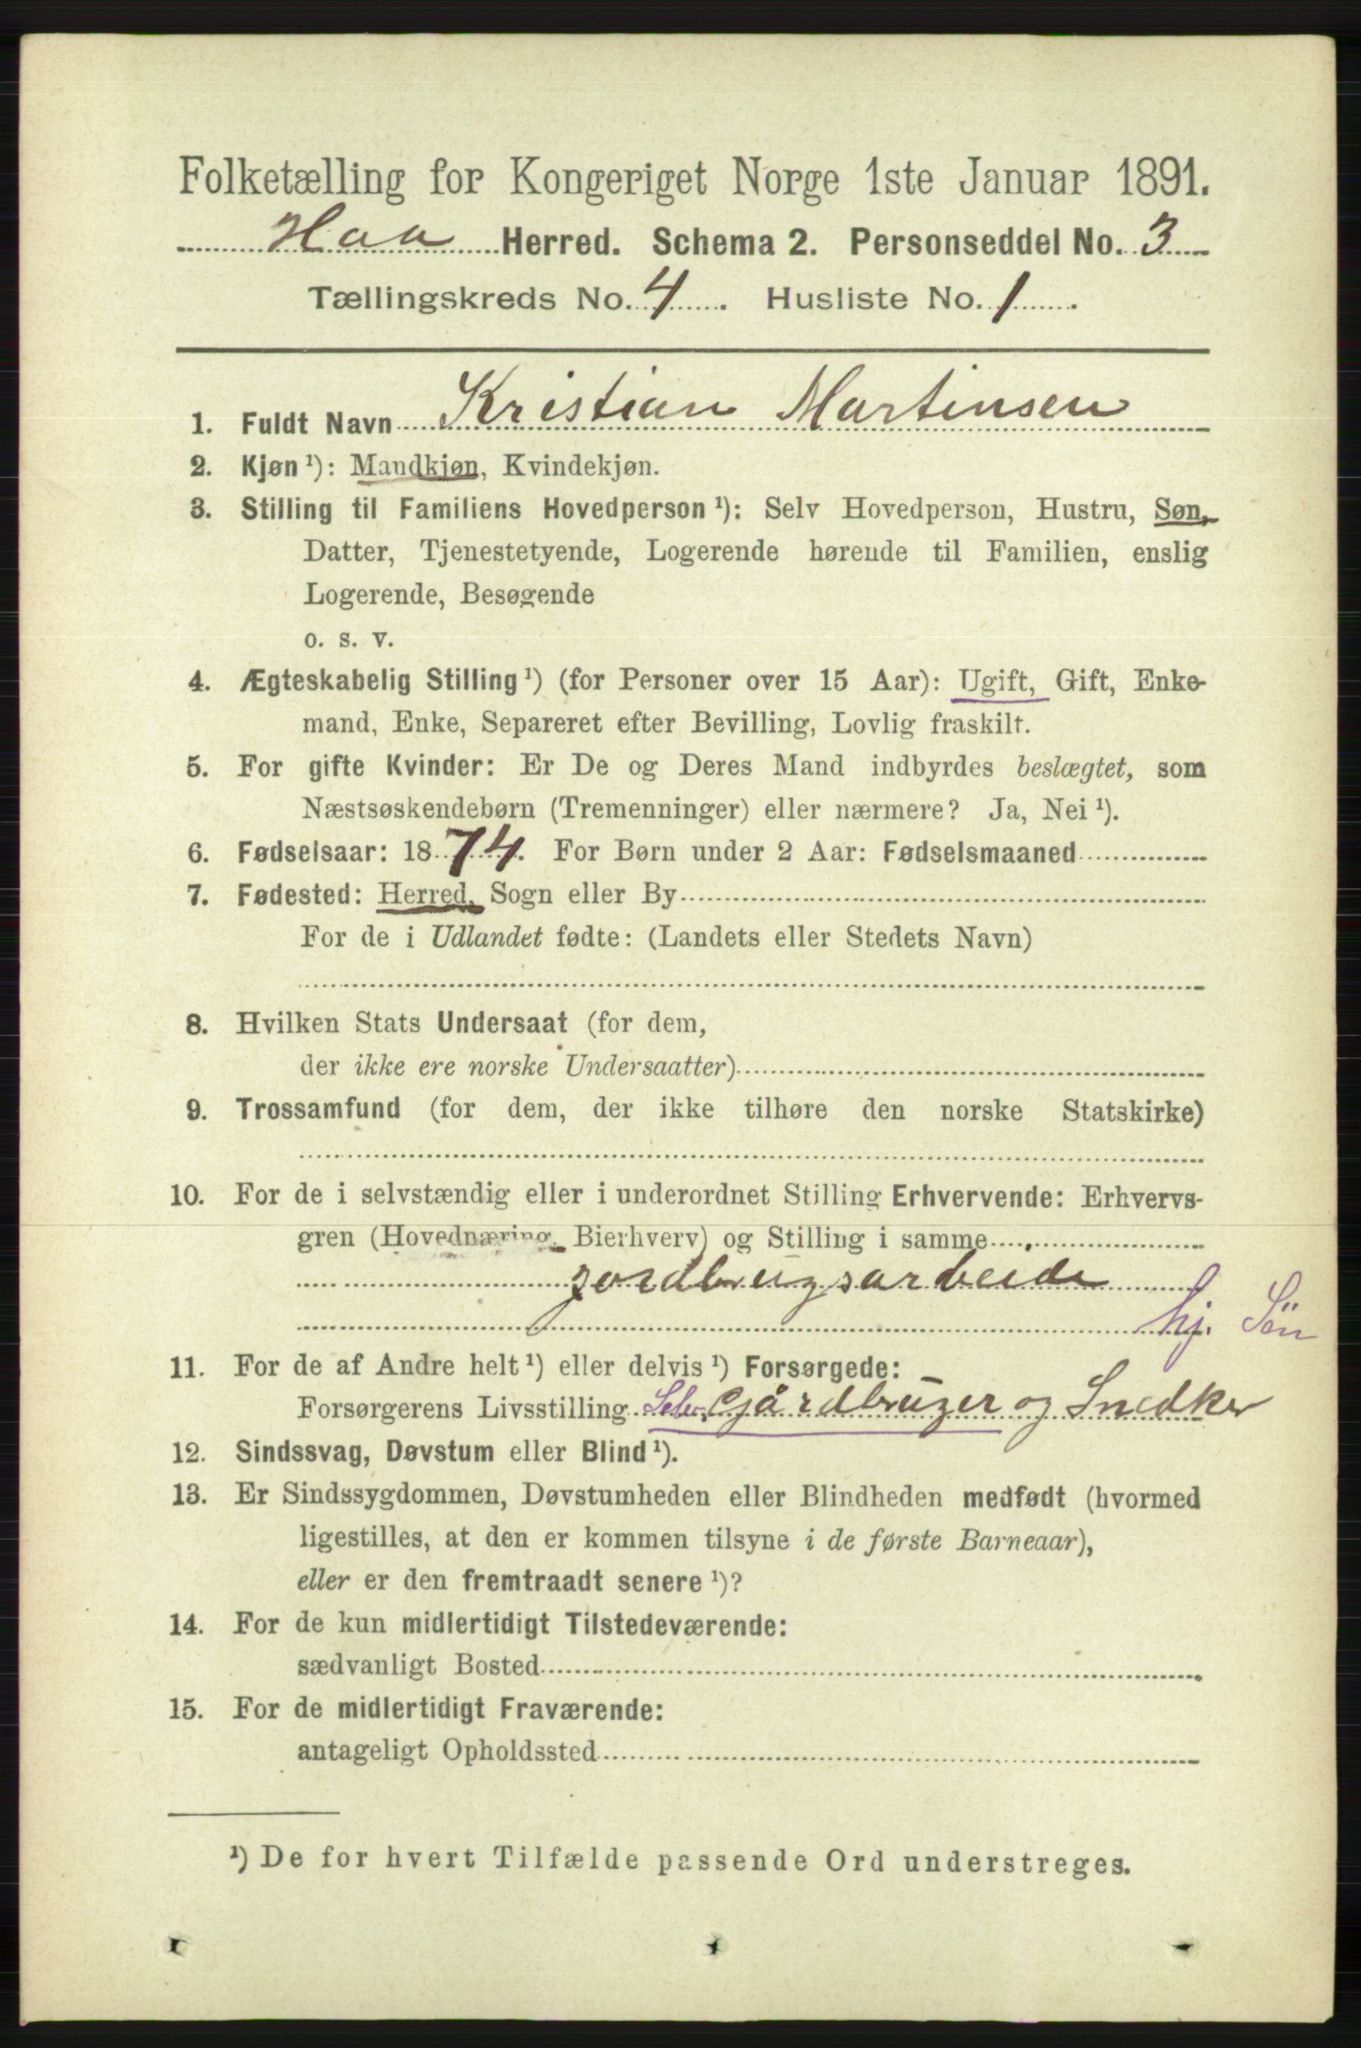 Folketælling for Kongeriget Norge 1ste Januar 1891.
Haa Herred. Schema 2. Personseddel No. 3
Tællingskreds No. 4. Husliste No. 1.
1. Fuldt Navn Kristian Martinsen
2. Kjøn ¹): Mandkjøn, Kvindekjøn.
3. Stilling til Familiens Hovedperson ¹): Selv Hovedperson, Hustru, Søn,
Datter, Tjenestetyende, Logerende hørende til Familien, enslig
Logerende, Besøgende
o. s. v.
4. Ægteskabelig Stilling ¹) (for Personer over 15 Aar): Ugift, Gift, Enke-
mand, Enke, Separeret efter Bevilling, Lovlig fraskilt.
5. For gifte Kvinder: Er De og Deres Mand indbyrdes beslægtet, som
Næstsøskendebørn (Tremenninger) eller nærmere? Ja, Nei ¹).
6. Fødselsaar: 1874. For Børn under 2 Aar: Fødselsmaaned
7. Fødested: Herred, Sogn eller By
For de i Udlandet fødte: (Landets eller Stedets Navn)
8. Hvilken Stats Undersaat (for dem,
der ikke ere norske Undersaatter)
9. Trossamfund (for dem, der ikke tilhøre den norske Statskirke)
10. For de i selvstændig eller i underordnet Stilling Erhvervende: Erhvervs-
gren (Hovednæring, Bierhverv) og Stilling i samme
jordbrugsarbeide
hj. Sön
11. For de af Andre helt ¹) eller delvis ¹) Forsørgede:
Forsørgerens Livsstilling Selv. Gårdbruger og Snedker
12. Sindssvag, Døvstum eller Blind ¹).
13. Er Sindssygdommen, Døvstumheden eller Blindheden medfødt (hvormed
ligestilles, at den er kommen tilsyne i de første Barneaar),
eller er den fremtraadt senere ¹)?
14. For de kun midlertidigt Tilstedeværende:
sædvanligt Bosted
15. For de midlertidigt Fraværende:
antageligt Opholdssted
¹) De for hvert Tilfælde passende Ord understreges.